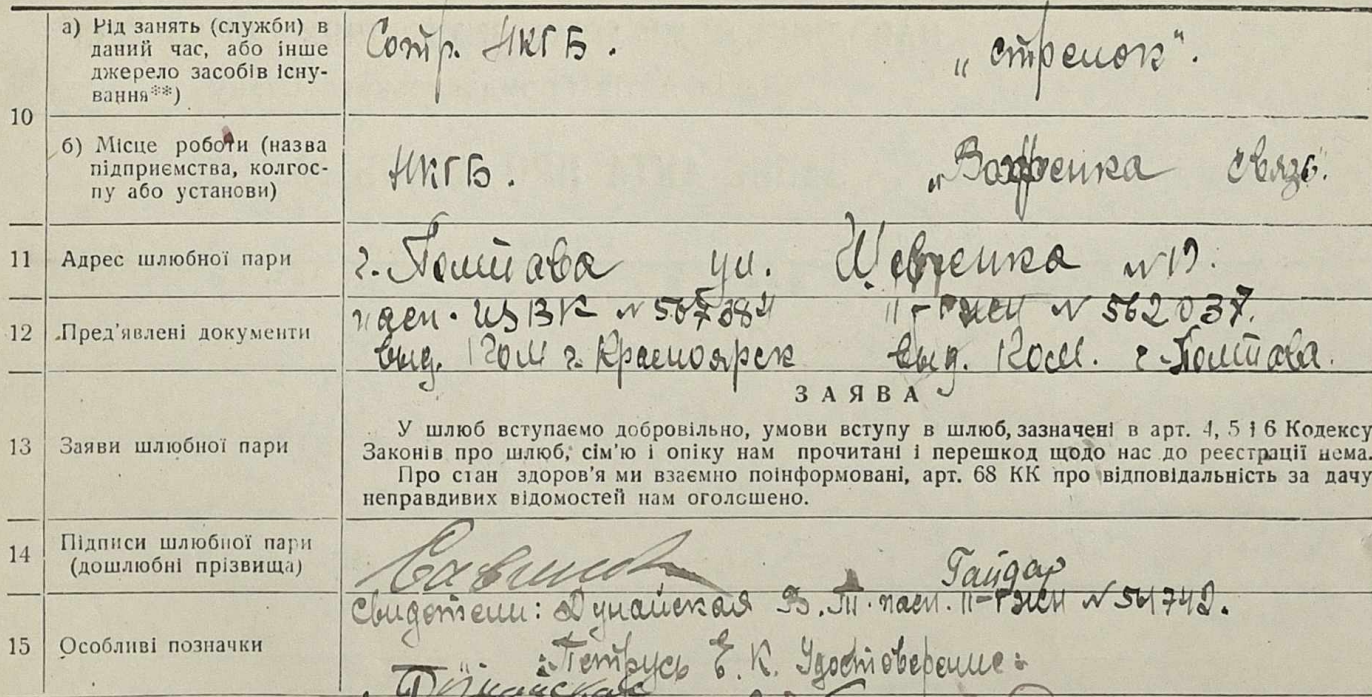 10
а) Рід занять (служби) в
даний час, або інше
джерело засобів існу-
вання**)
Сотр. НКГБ. „стрелок“.
б) Місце роботи (назва
підприємства, колгос-
пу або установи)
НКГБ. связь.
11 Адрес шлюбної пари г. Полтава ул. Шевченка №19.
12 Пред'явлені документи
пасп. № 562037.
выд. г. Красноярск выд. г. Полтава.
ЗАЯВА
13 Заяви шлюбної пари
У шлюб вступаємо добровільно, умови вступу в шлюб, зазначені в арт. 4, 5 і 6 Кодексу
Законів про шлюб, сім'ю і опіку нам прочитані і перешкод щодо нас до реєстрації нема.
Про стан здоров'я ми взаємно поінформовані, арт. 68 КК про відповідальність за дачу
неправдивих відомостей нам оголошено.
14 Підписи шлюбної пари
(дошлюбні прізвища)
Гайдар
15 Особливі позначки
свидетели: Дунайская В. П. пасп.
Петрусь Е. К. Удостоверение: